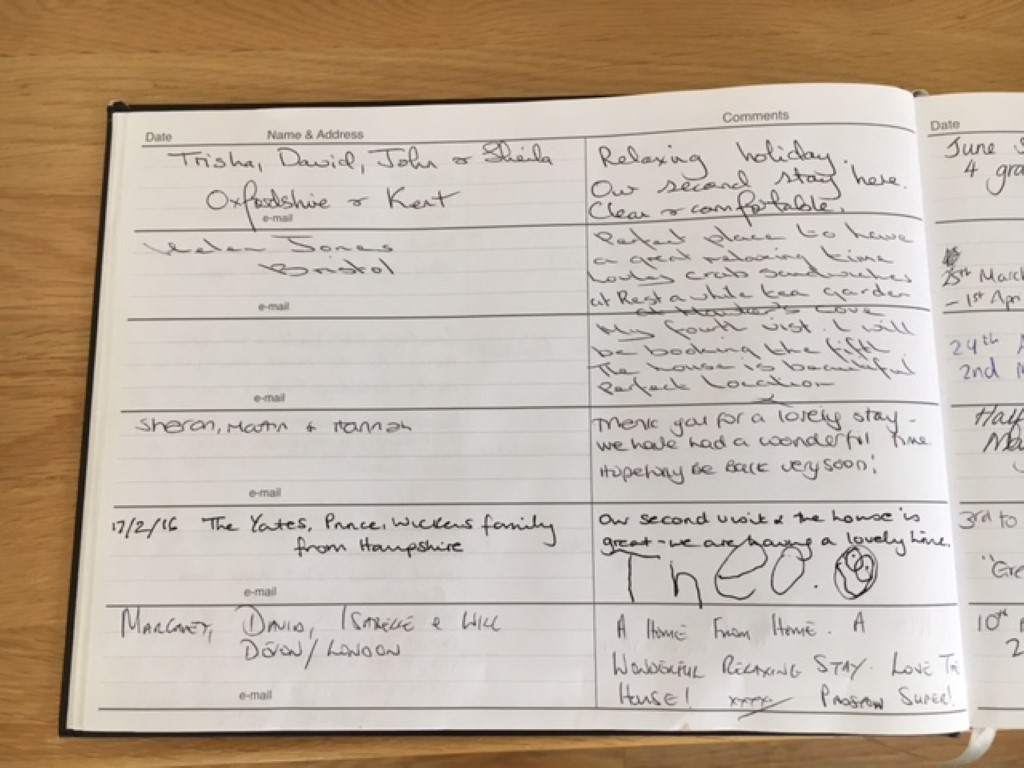 Date Name & Address Comments
Trisha, David, John & Sheila
Oxfordshire & Kent
e-mail
Relaxing holiday.
Our second stay here.
Clean & comfortable.
Helen Jones
Bristol
e-mail
Perfect place to have
a great relaxing time
Lovley crab sandwiches
at Rest a while tea garden
at Hawker's Cove
e-mail
My fourth vist. I will
be booking the fifth
The house is beautiful
Perfect Location
Sharon, Martin & Hannah
e-mail
Thank you for a lovely stay -
we have had a wonderful time
Hopefully be back very soon!
17/2/16 The Yates, Prince, Wickens family
from Hampshire
e-mail
Our second visit & the house is
great - we are having a lovely time.
Theo.
Margaret, David, Isabelle & Will
Devon/London
e-mail
A Home From Home. A
Wonderful Relaxing Stay. Love The
House! xxxx Padstow Super!
Date
June
4
25th March
- 1st Apr
24th
2nd
Half
3rd to
10th
2